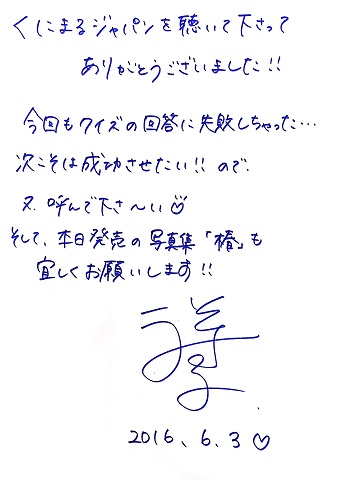 くにまるジャパンを聴いて下さって
ありがとうございました!!
今回もクイズの回答に失敗しちゃった…
次こそは成功させたい!!ので、
又、呼んで下さ〜い♡
そして、本日発売の写真集「椿」も
宜しくお願いします!!
2016、6、3♡